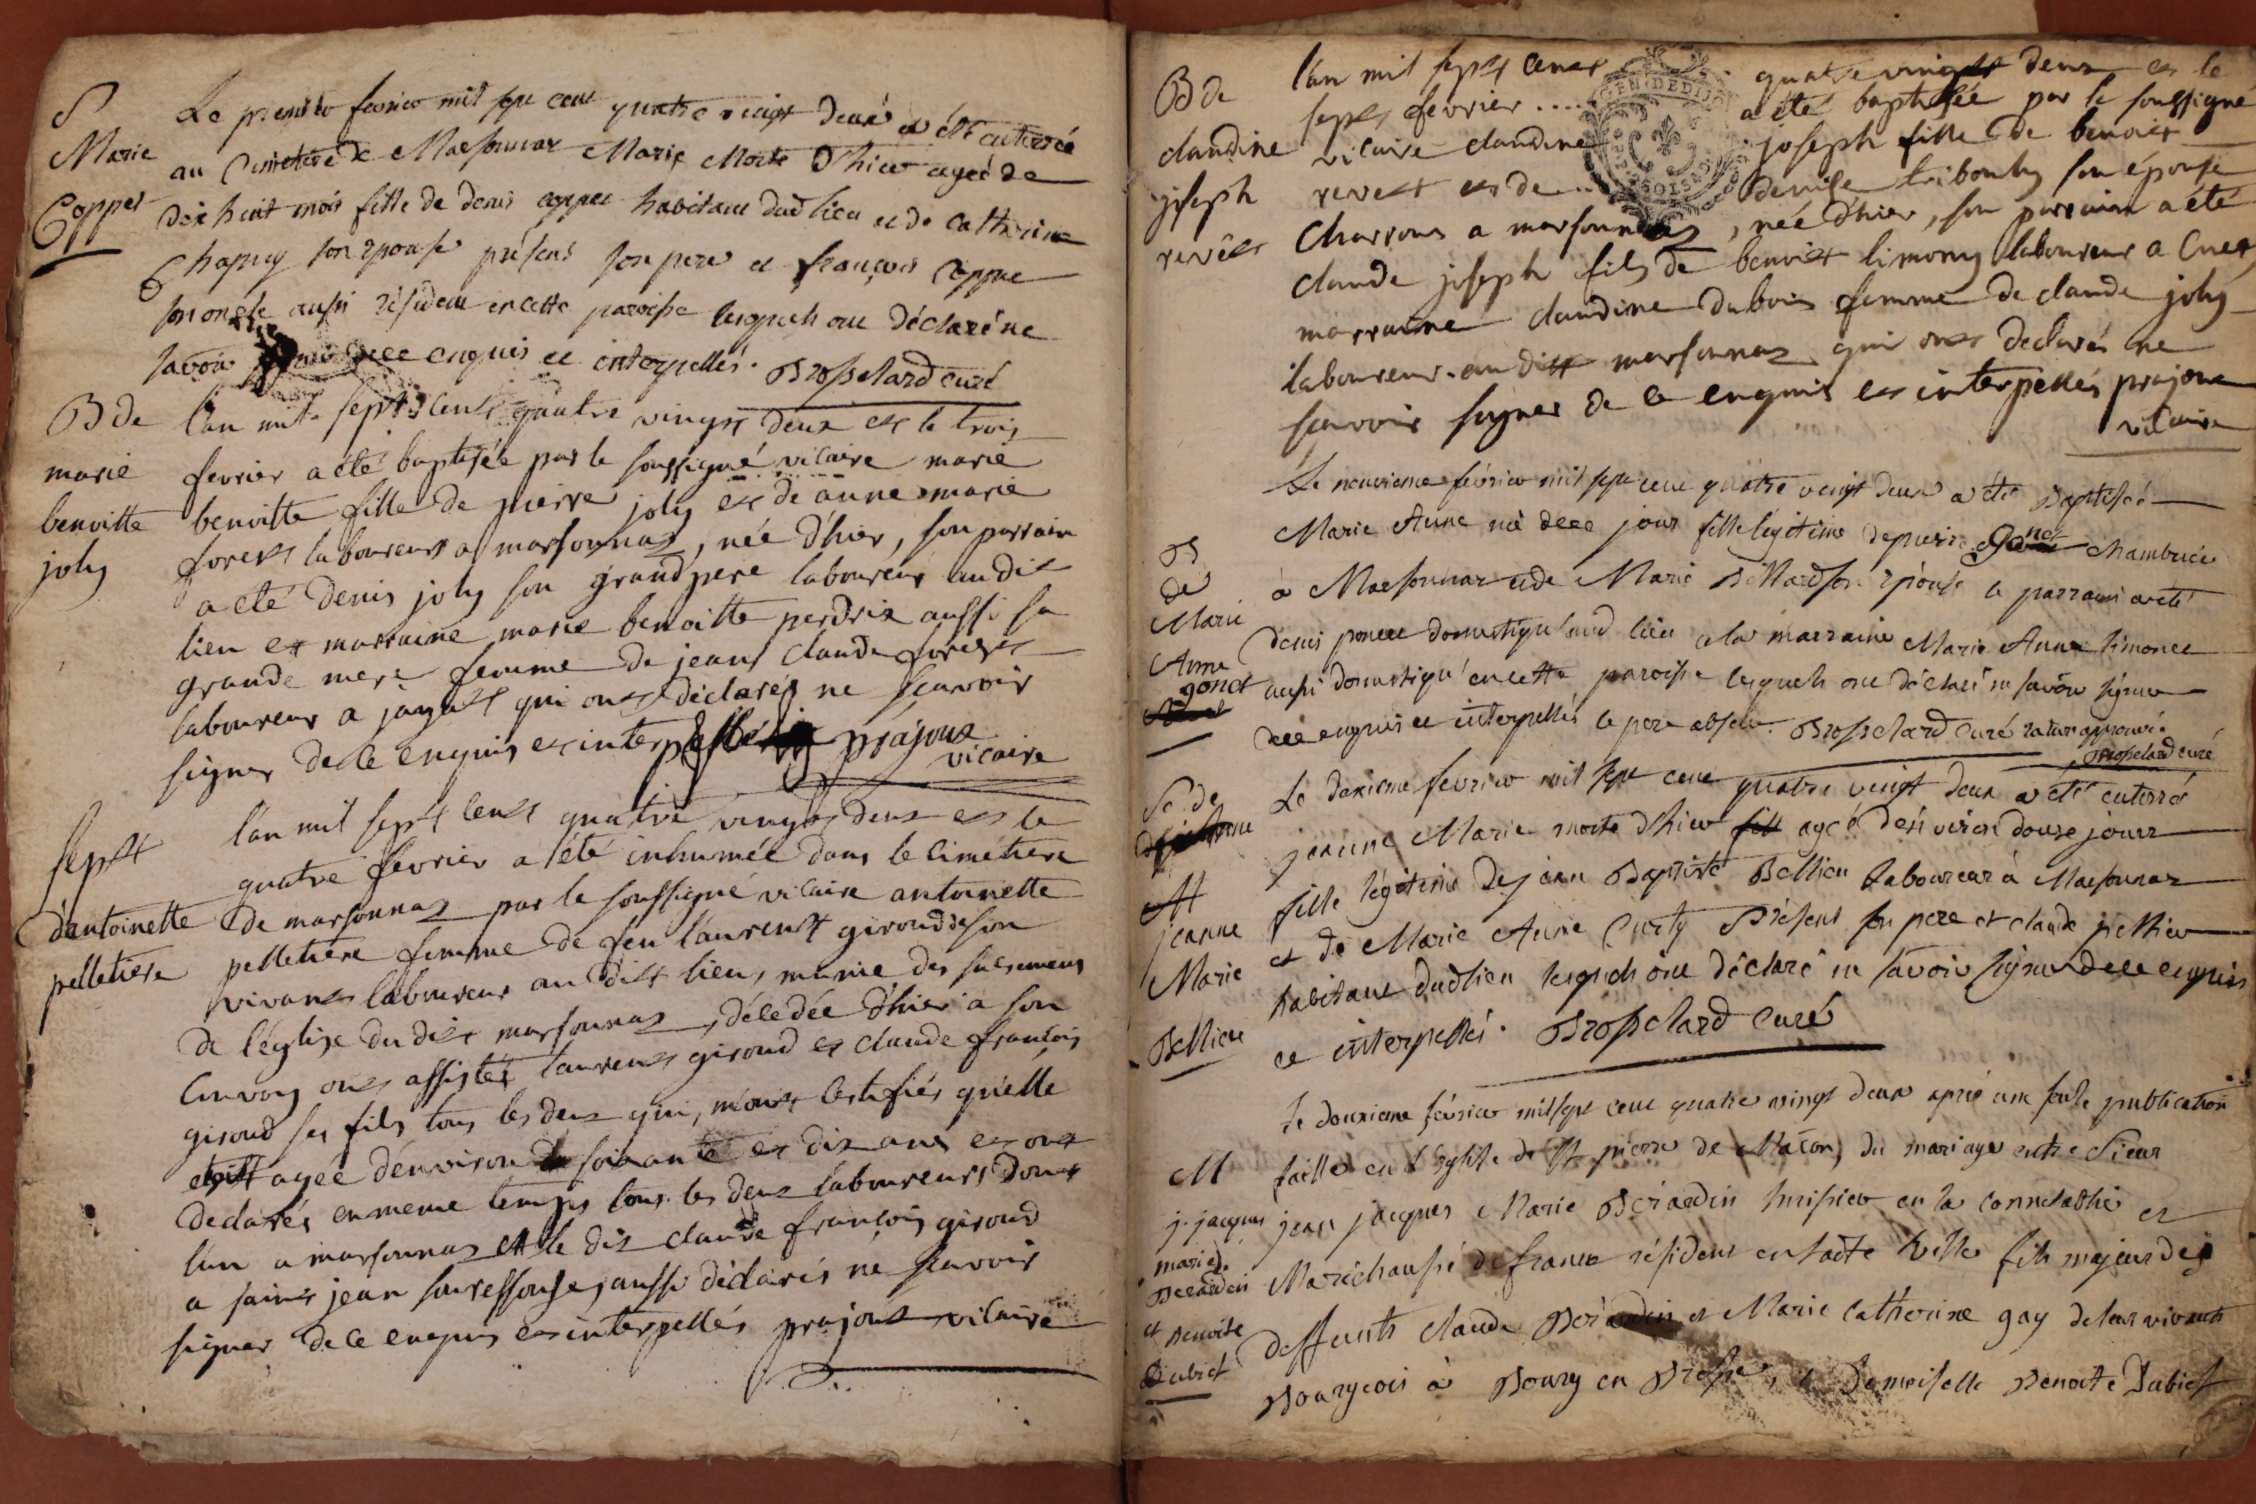 S
Marie
Coppet
Le premier fevrier mil sept cent quatre vingt deux a été enterrée
au Cimetiere de Marsonnas Marie Morte d'hier agée de
dix huit mois fille de denis coppet habitant dud lieu et de Catherine
Chapuy son epouse présens son pere et françois Coppet
son oncle aussi résident en cette paroisse lesquels ont déclaré ne
savoir signer de ce enquis et interpellés. Brosselard curé
B de
marie
benoitte
joly
l'an mil sept cent quatre vingt deux et le trois
fevrier a été baptisée par le soussigné vicaire marie
benoitte fille de pierre joly et de anne marie
forest laboureur a marsonnas, née d'hier, son parrain
a été denis joly son grand pere laboureur au dit
lieu et marraine marie benoitte perdrix aussi sa
grande mere femme de jean claude forest
laboureur a jayat qui ont déclarés ne scavoir
signer de ce enquis et interpellés prajoux
vicaire
sept
d'antoinette
pelletiere
l'an mil sept cent quatre vingt deux et le
quatre fevrier a été inhumée dans le cimetiere
de marsonnas par le soussigné vicaire antoinette
pelletiere femme de feu laurent giroud de son
vivant laboureur au dit lieu, munie des sacremens
de l'église du dit marsonnas, décedée d'hier a son
Convoy ont assistés laurent giroud et claude françois
giroud ses fils tous les deux qui, m'ont certifiés qu'elle
etoit agée d'environ soixante et dix ans et ont
declarés en meme temps tous les deux laboureurs dont
l'un a marsonnas et le dit claude françois giroud
a saint jean sur ressouse, aussi déclarés ne scavoir
signer de ce enquis et interpellés prajoux vicaire
B de
claudine
joseph
revest
l'an mil sept cent quatre vingt deux et le
sept fevrier .... a été baptisée par le soussigné
vicaire claudine joseph fille de benoit
revest et de .. denise tribouly son épouse
Charrons a marsonnas, née d'hier, son parrain a été
claude joseph fils de benoit limony laboureur a Cuet,
marraine claudine dubois femme de claude joly
laboureur au dit marsonnas qui ont declarés ne
scavoir signer de ce enquis et interpellés prajoux
vicaire
B
de
Marie
Anne
gonet
Le neuvieme février mil sept cent quatre vingt deux a été Baptisée
Marie Anne née de ce jour fille légitime de pierre gonet
à Marsonnas et de Marie Billard son epouse le parrain a été
denis poncet domestique aud lieu et la marraine Marie Anne limonet
aussi domestique en cette paroisse lesquels ont déclaré ne savoir signer
de ce enquis et interpellés le pere absent. Brosselard curé rature approuvé.
Brosselard curé
Se de
jeanne
Marie
Bellieu
Le dixieme fevrier mil sept cent quatre vingt deux a été enterré
jeanne Marie morte d'hier fille agée d'environ douse jours
fille légitime de jean Baptiste Bellieu Laboureur à Marsonnas
et de Marie Anne Curty Présens son pere et claude pellieu
habitant dud lieu lesquels ont déclaré ne savoir signer de ce enquis
et interpellés. Brosselard Curé
M
j. jacques
marie
Berardin
et Benoite
Dubiet
Le douxieme février mil sept cent quatre vingt deux après une seule publication
faitte en l'Eglise de St pierre de Macon, du mariage entre Sieur
jean jacques Marie Bérardin huissier en la connetablie et
Maréchaussé de france résident en ladte Ville fils majeur des
deffunts claude Bérardin et Marie Catherine gay de leur vivants
Bourgeois à Bourg en Bresse, Demoiselle Benoite Dubiet